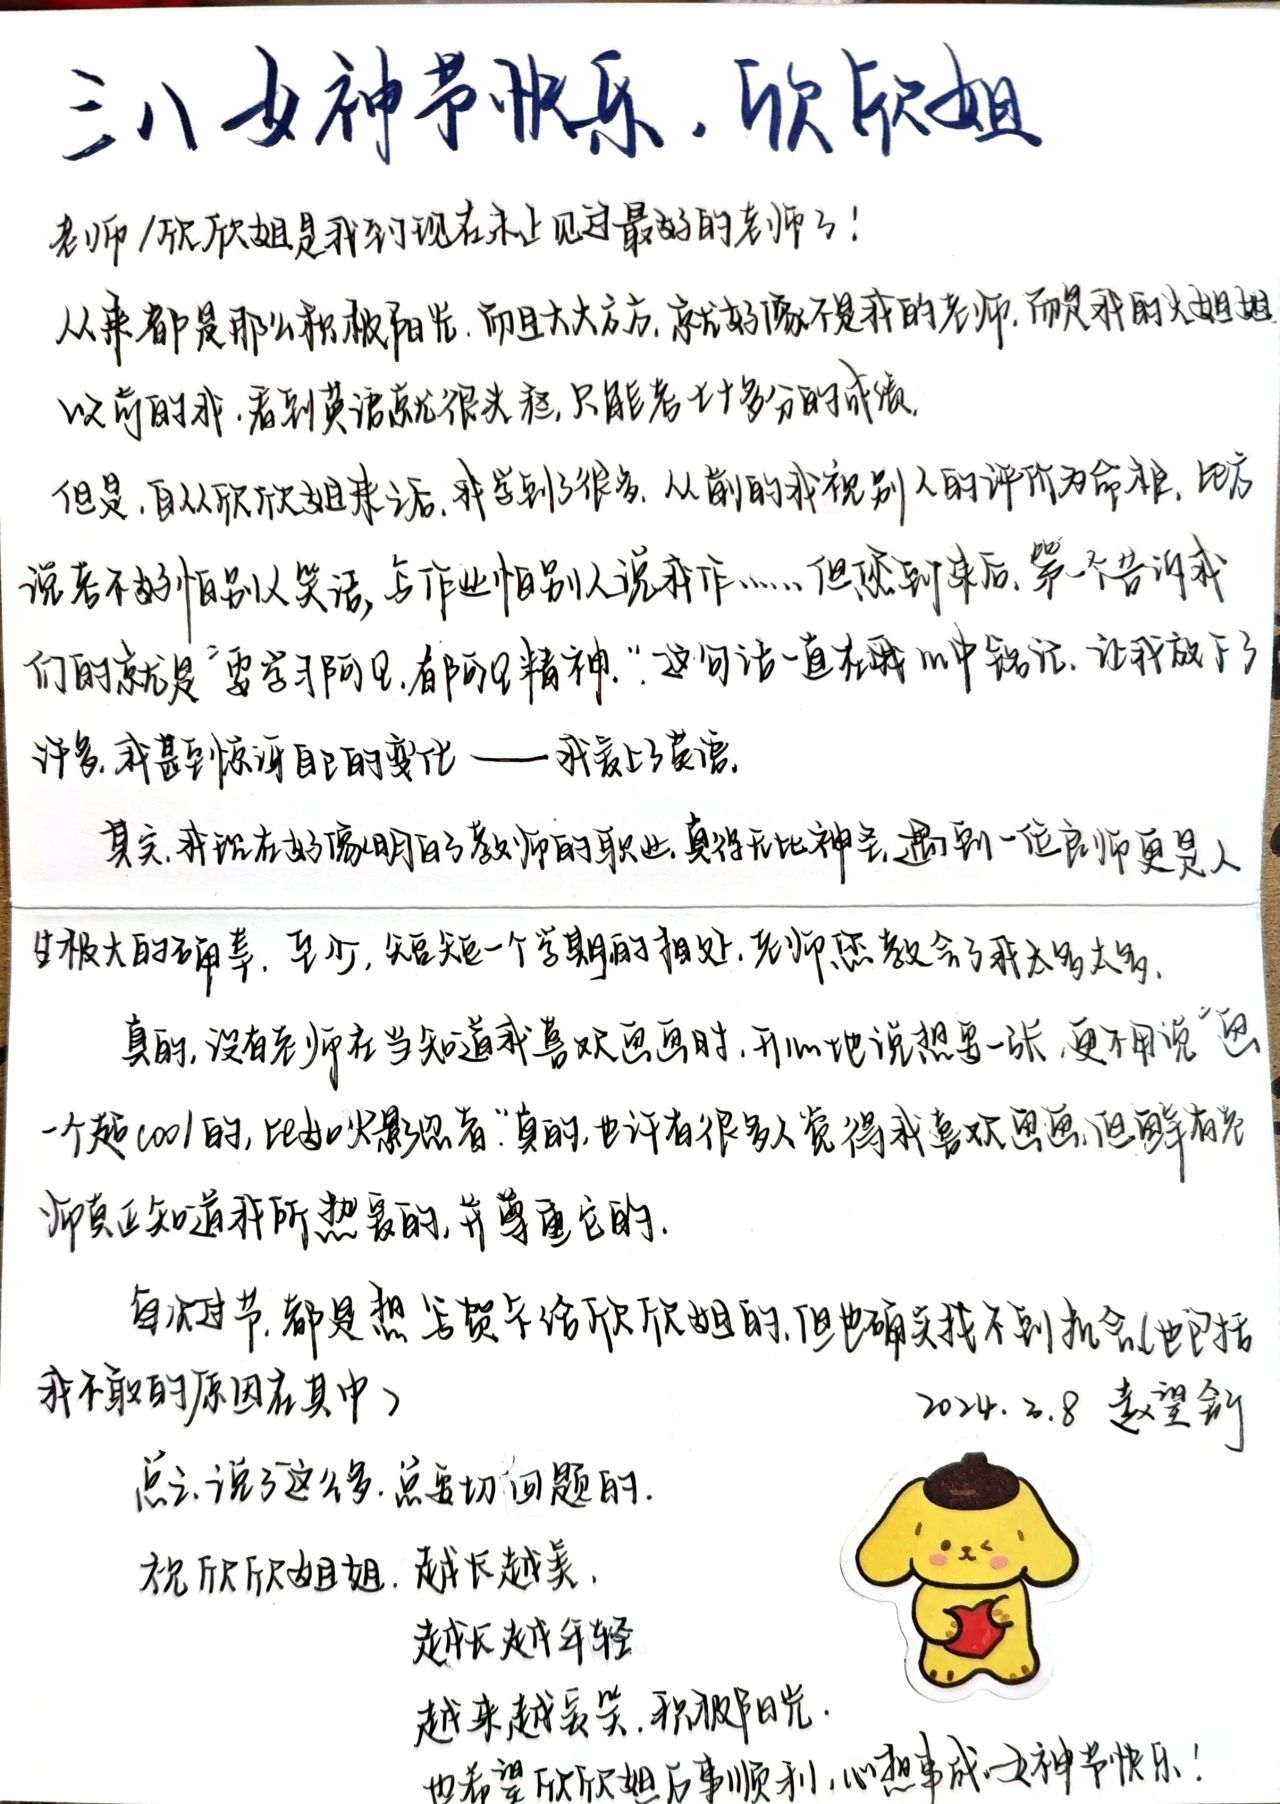 三八女神节快乐，欣欣姐
老师/欣欣姐是我到现在未止见过最好的老师了！
从来都是那么积极阳光，而且大大方方，就好像不是我的老师，而是我的大姐姐
以前的我，看到英语就很头疼，只能考七十多分的成绩。
但是，自从欣欣姐来之后，我学到了很多，从前的我视别人的评价为命根，比方
说考不好怕别人笑话，写作业怕别人说我作……但您到来后，第一个告诉我
们的就是“要学习阿Q，有阿Q精神。”这句话一直在我心中铭记，让我放下了
许多，我甚至惊讶自己的变化——我爱上了英语。
其实，我现在好像明白了教师的职业，真得无比神圣，遇到一位良师更是人
生极大的确幸，至少，短短一个学期的相处，老师您教会了我太多太多。
真的，没有老师在当知道我喜欢画画时，开心地说想要一张，更不用说“画
一个超cool的，比如火影忍者”真的，也许有很多人觉得我喜欢画画，但鲜有老
师真正知道我所热爱的，并尊重它的。
每次过节，都是想写贺卡给欣欣姐的，但也确实找不到机会（也包括
我不敢的原因在其中）
2024.3.8 赵望舒
总之，说了这么多，总要切回题的。
祝欣欣姐姐，越长越美，
越长越年轻
越来越爱笑，积极阳光。
也希望欣欣姐万事顺利，心想事成，女神节快乐！